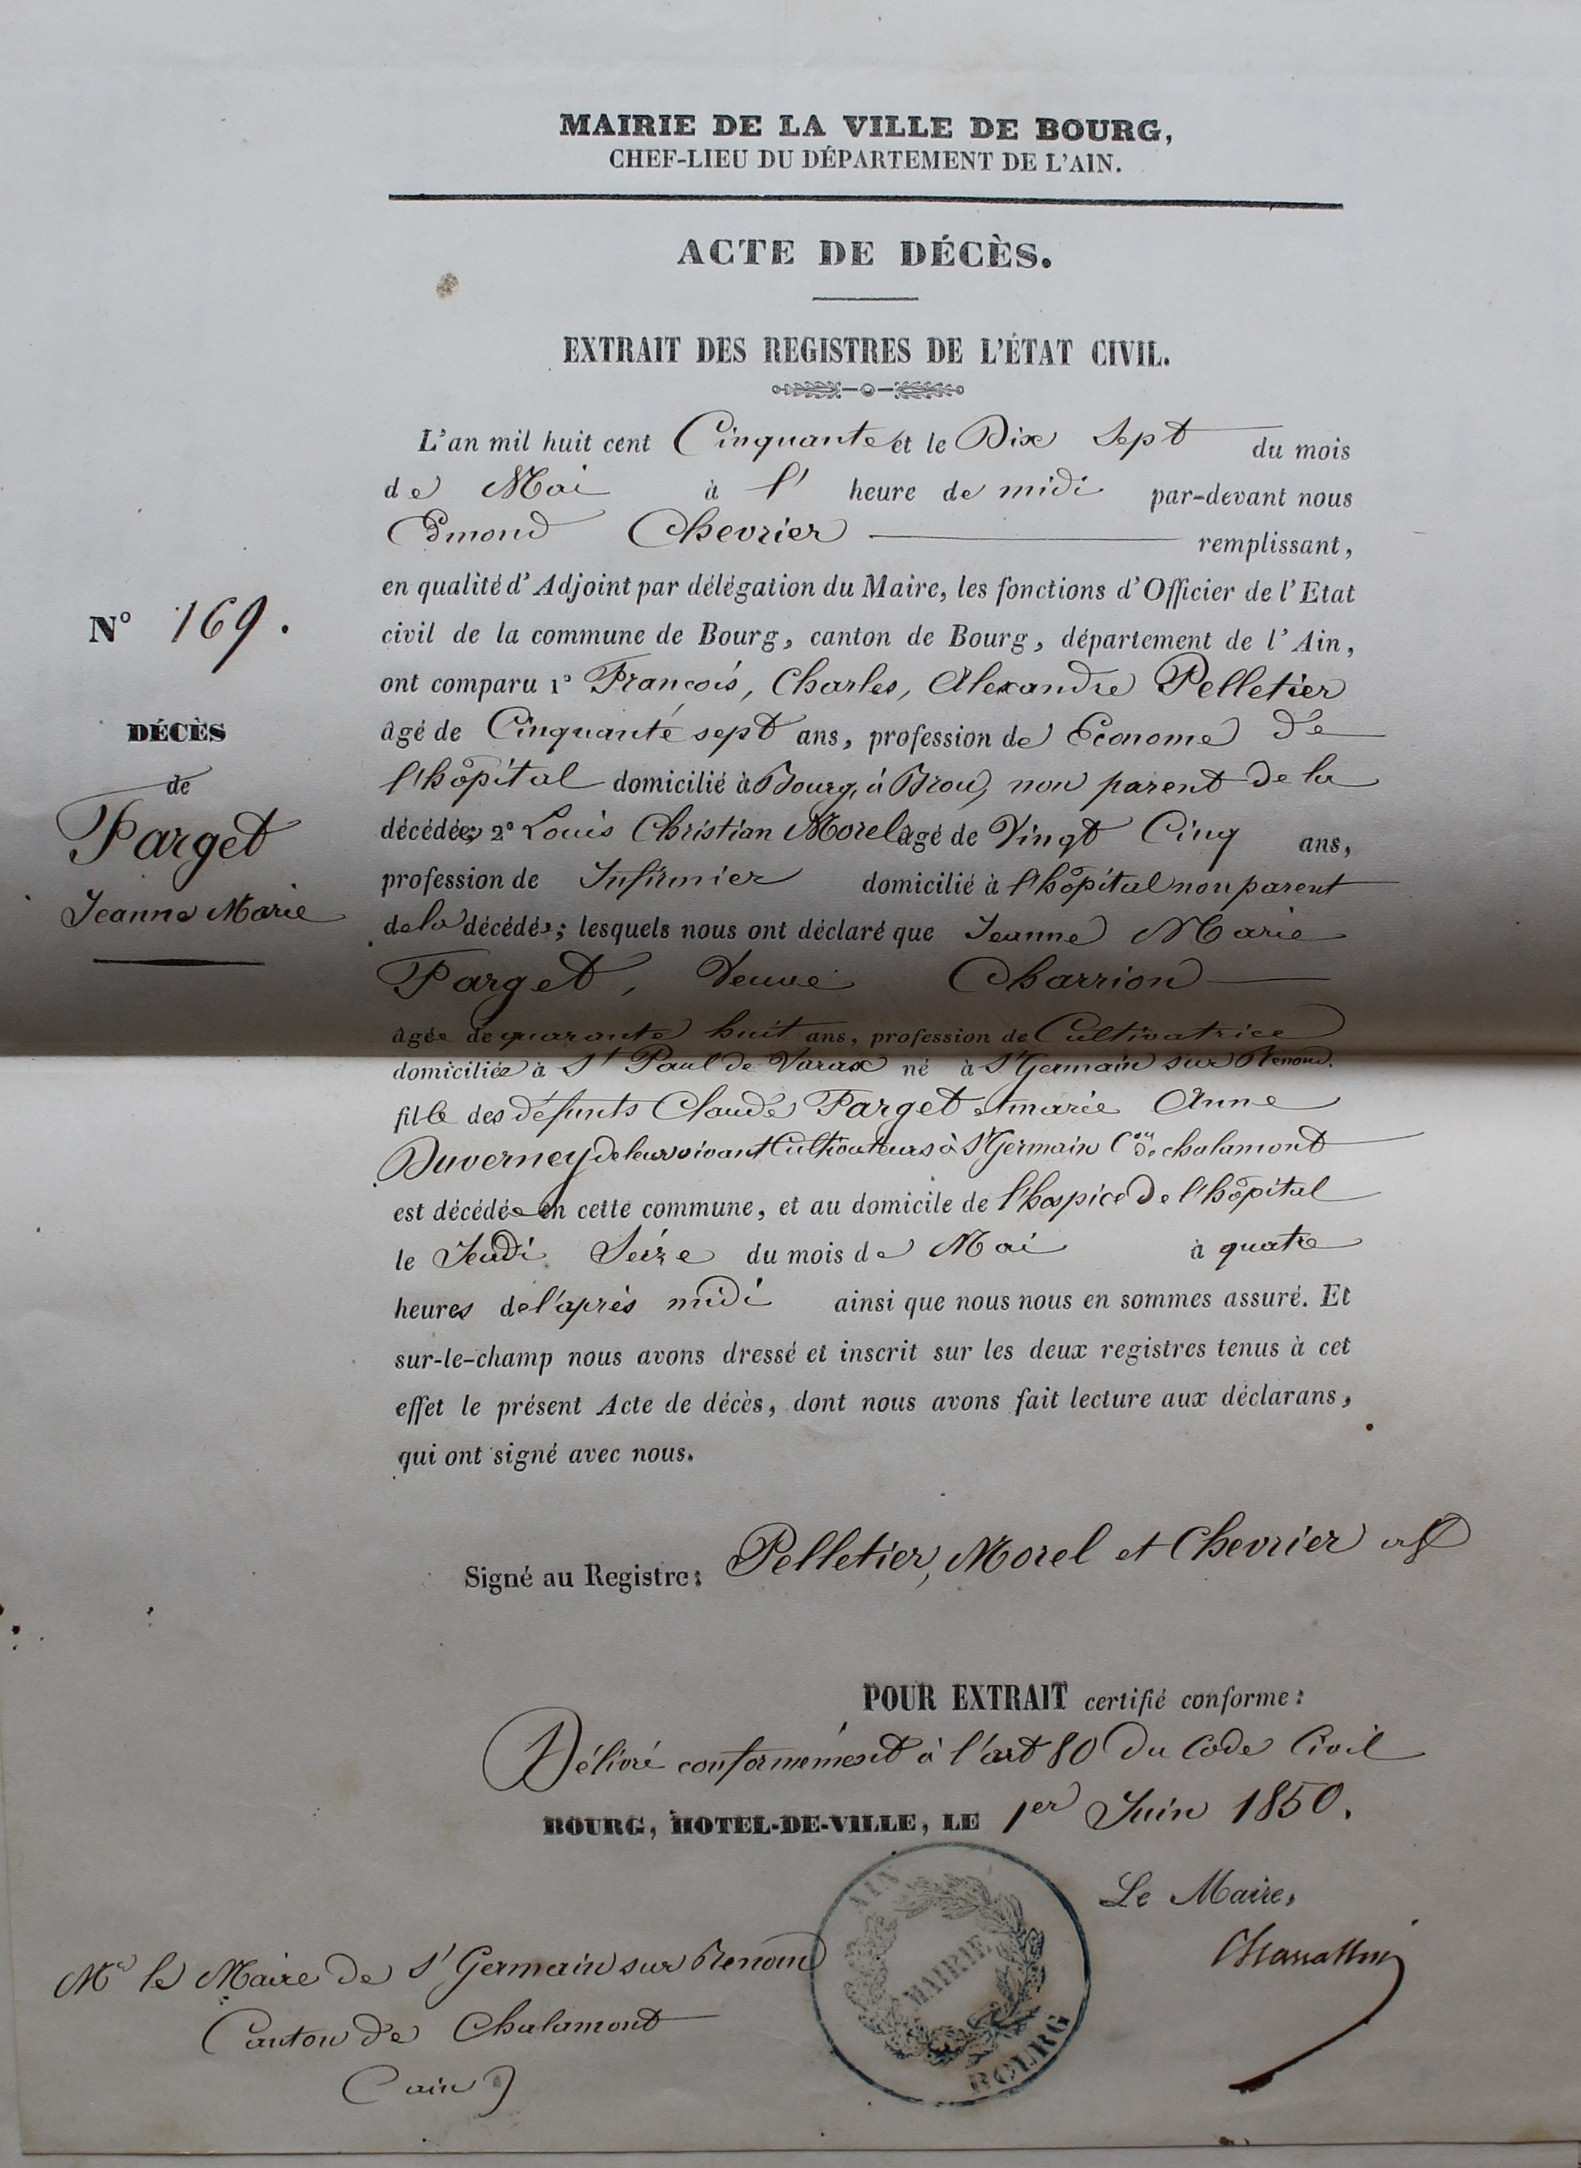 MAIRIE DE LA VILLE DE BOURG,
CHEF-LIEU DU DÉPARTEMENT DE L'AIN.
ACTE DE DÉCÈS.
EXTRAIT DES REGISTRES DE L'ÉTAT CIVIL.
L'an mil huit cent Cinquante et le Dix Sept du mois
de Mai à l' heure de midi par-devant nous
Edmond Chevrier remplissant,
en qualité d'Adjoint par délégation du Maire, les fonctions d'Officier de l'Etat
civil de la commune de Bourg, canton de Bourg, département de l'Ain,
ont comparu 1° François, Charles, Alexandre Pelletier
âgé de Cinquante sept ans, profession de Econome de
l'hôpital domicilié à Bourg, à Brou, non parent de la
décédée; 2° Louis Christian Morel âgé de Vingt Cinq ans,
profession de Infirmier domicilié à l'hôpital non parent
de la décédée; lesquels nous ont déclaré que Jeanne Marie
Farget, Veuve Charrion
âgée de quarante huit ans, profession de Cultivatrice
domiciliée à St Paul de Varax né à St Germain sur Renom.
fille des défunts Claude Farget et marie Anne
Duverney de leur vivant Cultivateurs à St Germain Con de chalamont
est décédée en cette commune, et au domicile de l'hospice de l'hôpital
le Jeudi Seize du mois de Mai à quatre
heures de l'après midi ainsi que nous nous en sommes assuré. Et
sur-le-champ nous avons dressé et inscrit sur les deux registres tenus à cet
effet le présent Acte de décès, dont nous avons fait lecture aux déclarans,
qui ont signé avec nous.
N° 169.
DÉCÈS
de
Farget
Jeanne Marie
Signé au Registre: Pelletier, Morel et Chevrier adj
POUR EXTRAIT certifié conforme:
Délivré conformément à l'art 80 du Code Civil
BOURG, HOTEL-DE-VILLE, LE 1er Juin 1850.
Le Maire,
Mr le Maire de St Germain sur Renom
Canton de Chalamont
(ain)
AIN
MAIRIE
BOURG